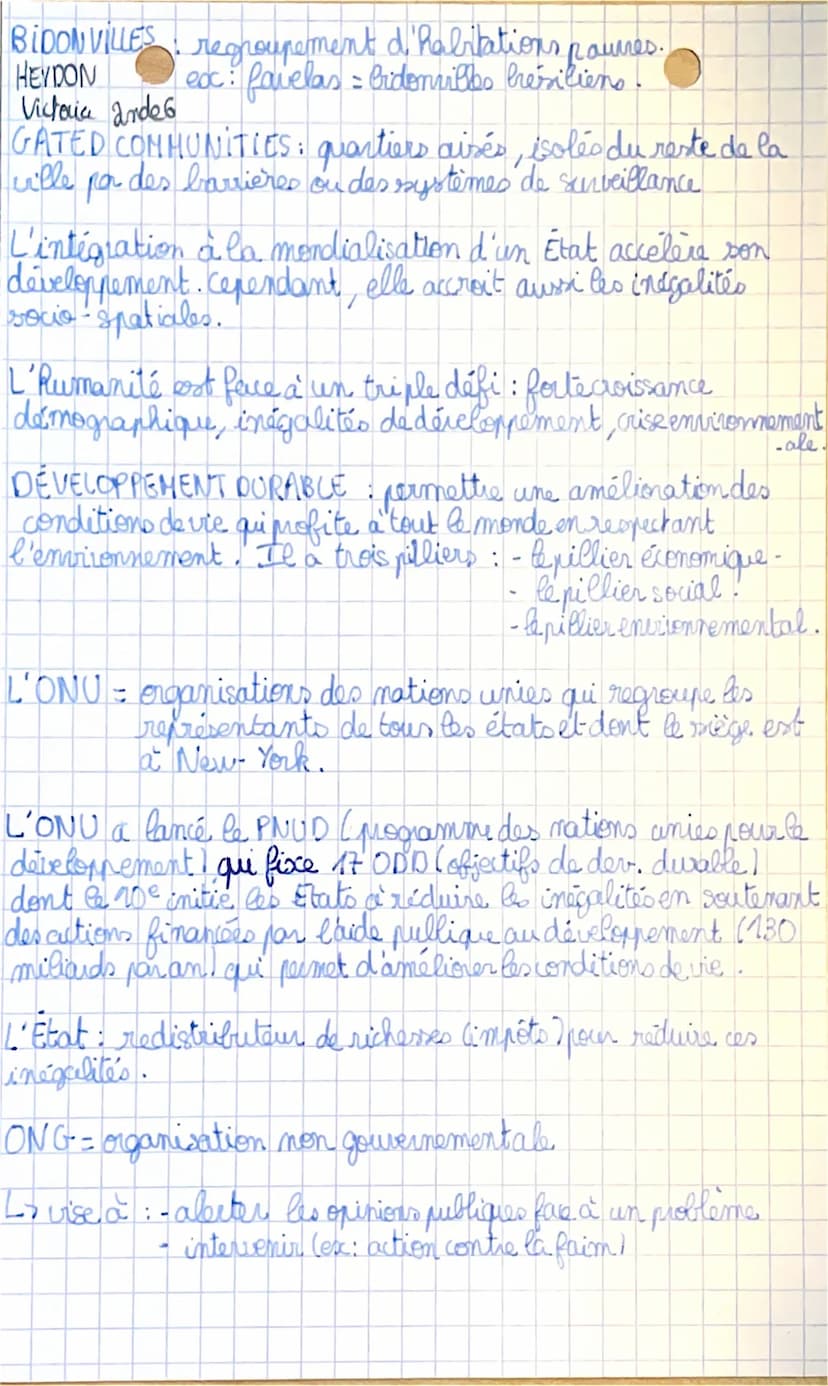 BIDONVILLES : regroupement d'habitations pauvres.
HEYDON ex : favelas = bidonvilles brésiliens.
Victoria 2nde6
GATED COMMUNITIES : quartiers aisés, isolés du reste de la
ville par des barrières ou des systèmes de surveillance
L'intégration à la mondialisation d'un État accélère son
développement. Cependant, elle accroit aussi les inégalités
socio-spatiales.
L'humanité est face à un triple défi : forte croissance
démographique, inégalités de développement, crise environnement
-ale.
DÉVELOPPEMENT DURABLE : permettre une amélioration des
conditions de vie qui profite à tout le monde en respectant
l'environnement. Il a trois pilliers : - le pillier économique -
- le pillier social.
- le pillier environnemental.
L'ONU = organisations des nations unies qui regroupe les
représentants de tous les états et dont le siège est
à New-York.
L'ONU a lancé le PNUD (programme des nations unies pour le
développement) qui fixe 17 ODD (objectifs de dev. durable)
dont le 10e initie les États à réduire les inégalités en soutenant
des actions financées par l'aide publique au développement (130
miliards par an) qui permet d'améliorer les conditions de vie.
L'État : redistributeur de richesses (impôts) pour réduire ces
inégalités.
ONG = organisation non gouvernementale
↳ vise à : - alerter les opinions publiques face à un problème
- intervenir (ex : action contre la faim)